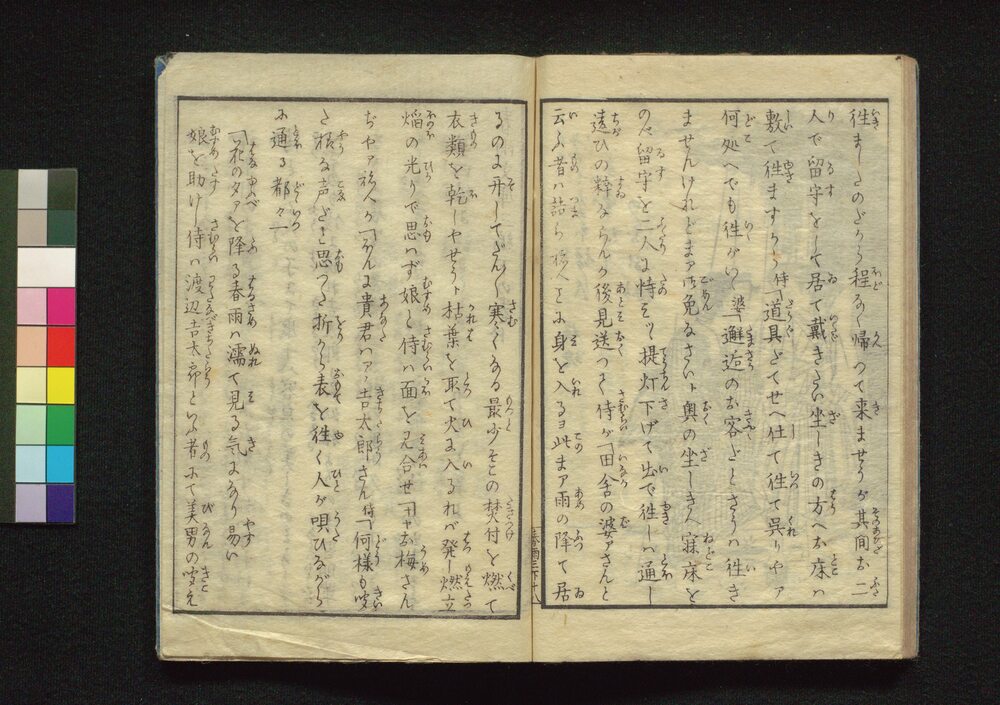 往ましたのだから程なく帰つて来ませうが其間お二
人で留守をして居て戴きたい坐しきの方へお床は
敷て往ますから 侍「道具だてせへ仕て往て呉りやア
何処へでも往がいゝ 婆「邂逅のお客だとさうは往き
ませんけれどまア御免なさいト奥の坐しきへ寐床を
のべ留守を二人に恃みツゝ提灯下げて出で往しは通し
遠ひの粋ならんか後見送つて 侍が「田舎の婆アさんと
云ふ者は詰らねへことに身を入るヨ此まア雨の降て居
るのに 
寒くなる最少そこの焚付を燃て
衣類を乾しやせうト枯葉を取て火に入るれバ発ト燃立
焔の光りで思はず娘と侍は面を見合せ「ヤお梅さん
ぢやア 娘「
貴君ハアノ吉太郎さん 侍「何様も
た様な声だと思つた折から表を往く人が唄ひながら
に通る都々一
「花の夕アを降る春雨に濡て見る気になり易い
娘を助けし侍は渡辺吉太郎といふ者にて美男の聞え